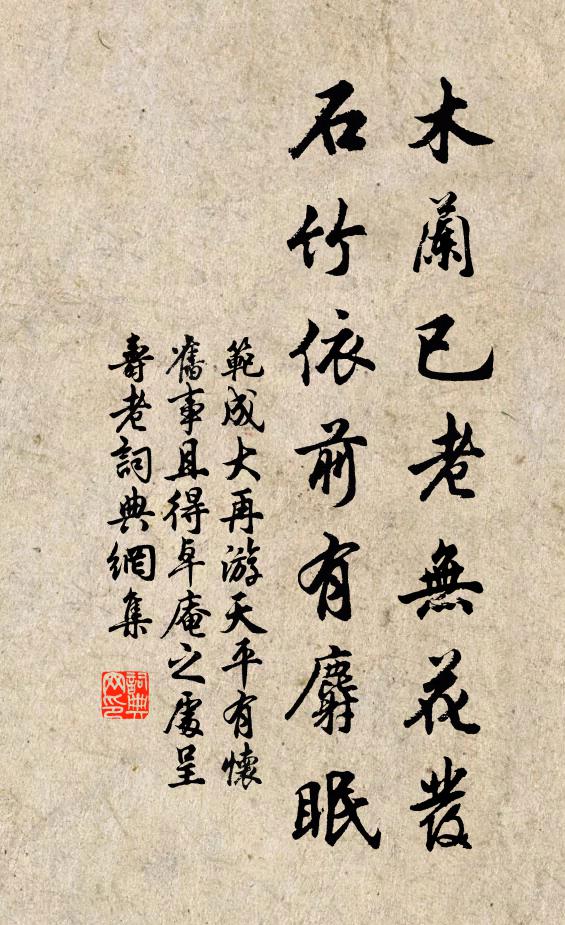 木蘭已老無花發
石竹依前有麝眠
範成大再游天平有懷
舊事且得卓庵之處呈
壽老詞典網集
詞典網印